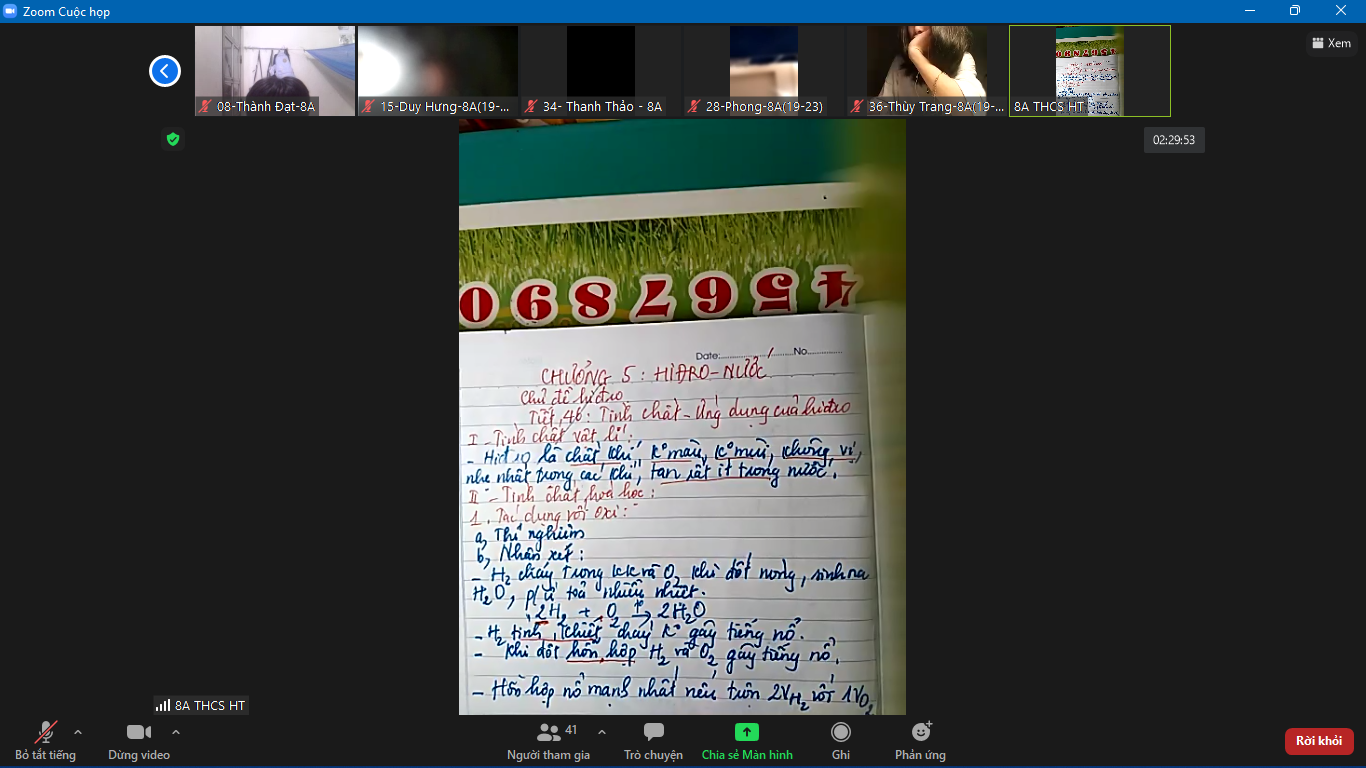 Zoom Cuộc họp
Xem
08-Thành Đạt-8A
15-Duy Hưng-8A(19-...
34- Thanh Thảo - 8A
28-Phong-8A(19-23)
36-Thùy Trang-8A(19-...
8A THCS HT
02:29:53
4567890
Date: No
CHƯƠNG 5 : HIĐRO-NƯỚC
Chủ đề hiđro
Tiết 46 : Tính chất - Ứng dụng của hiđro
I - Tính chất vật lí :
- Hiđro là chất khí, k° màu, k° mùi, không vị,
nhẹ nhất trong các khí, tan rất ít trong nước.
II - Tính chất hoá học :
1. Tác dụng với oxi :
a, Thí nghiệm
b, Nhận xét :
- H₂ cháy trong kk và O₂ khi đốt nóng, sinh ra
H₂O, p/ư toả nhiều nhiệt.
2H₂ + O₂ t° → 2H₂O
- H₂ tinh khiết cháy k° gây tiếng nổ.
- Khi đốt hỗn hợp H₂ và O₂ gây tiếng nổ.
- Hỗn hợp nổ mạnh nhất nếu trộn 2VH₂ với 1VO₂
8A THCS HT
Bỏ tắt tiếng
Dừng video
41
Người tham gia
Trò chuyện
Chia sẻ Màn hình
Ghi
Phản ứng
Rời khỏi